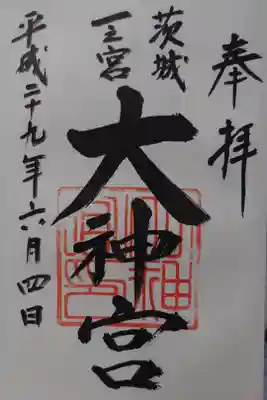 奉拝
茨城
宮
大神宮
平成二十九年六月四日